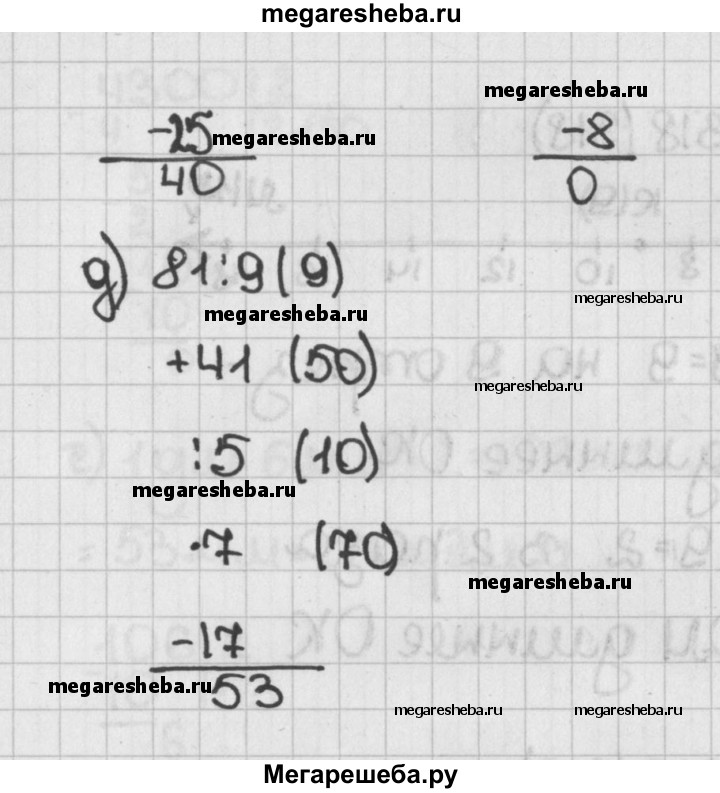 megaresheba.ru
megaresheba.ru
-25 megaresheba.ru -8
40 0
д) 81:9 (9)
megaresheba.ru
megaresheba.ru
+41 (50)
megaresheba.ru
:5 (10)
megaresheba.ru
·7 (70)
megaresheba.ru
-17
megaresheba.ru 53
megaresheba.ru megaresheba.ru
Мегарешеба.ру